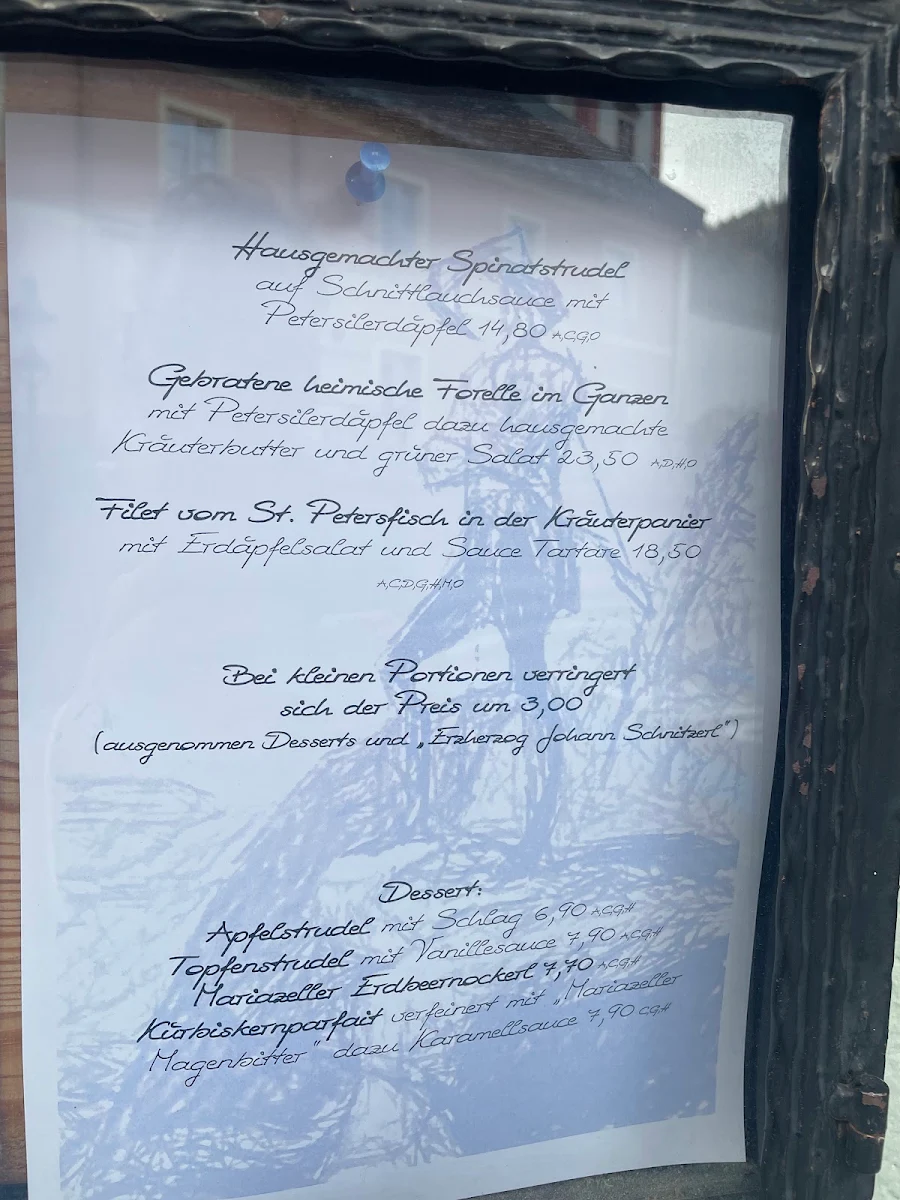 Hausgemachter Spinatstrudel
auf Schnittlauchsauce mit
Petersilerdäpfel 14,80 A,C,G,O
Gebratene heimische Forelle im Ganzen
mit Petersilerdäpfel dazu hausgemachte
Kräuterbutter und grüner Salat 23,50 A,D,H,O
Filet vom St. Petersfisch in der Kräuterpanier
mit Erdäpfelsalat und Sauce Tartare 18,50
A,C,D,G,H,M,O
Bei kleinen Portionen verringert
sich der Preis um 3,00
(ausgenommen Desserts und „Erzherzog Johann Schnitzerl")
Dessert:
Apfelstrudel mit Schlag 6,90 A,C,G,H
Topfenstrudel mit Vanillesauce 7,90 A,C,G,H
Mariazeller Erdbeernockerl 7,70 A,C,G,H
Kürbiskernparfait verfeinert mit „Mariazeller
Magenbitter" dazu Karamellsauce 7,90 C,G,H